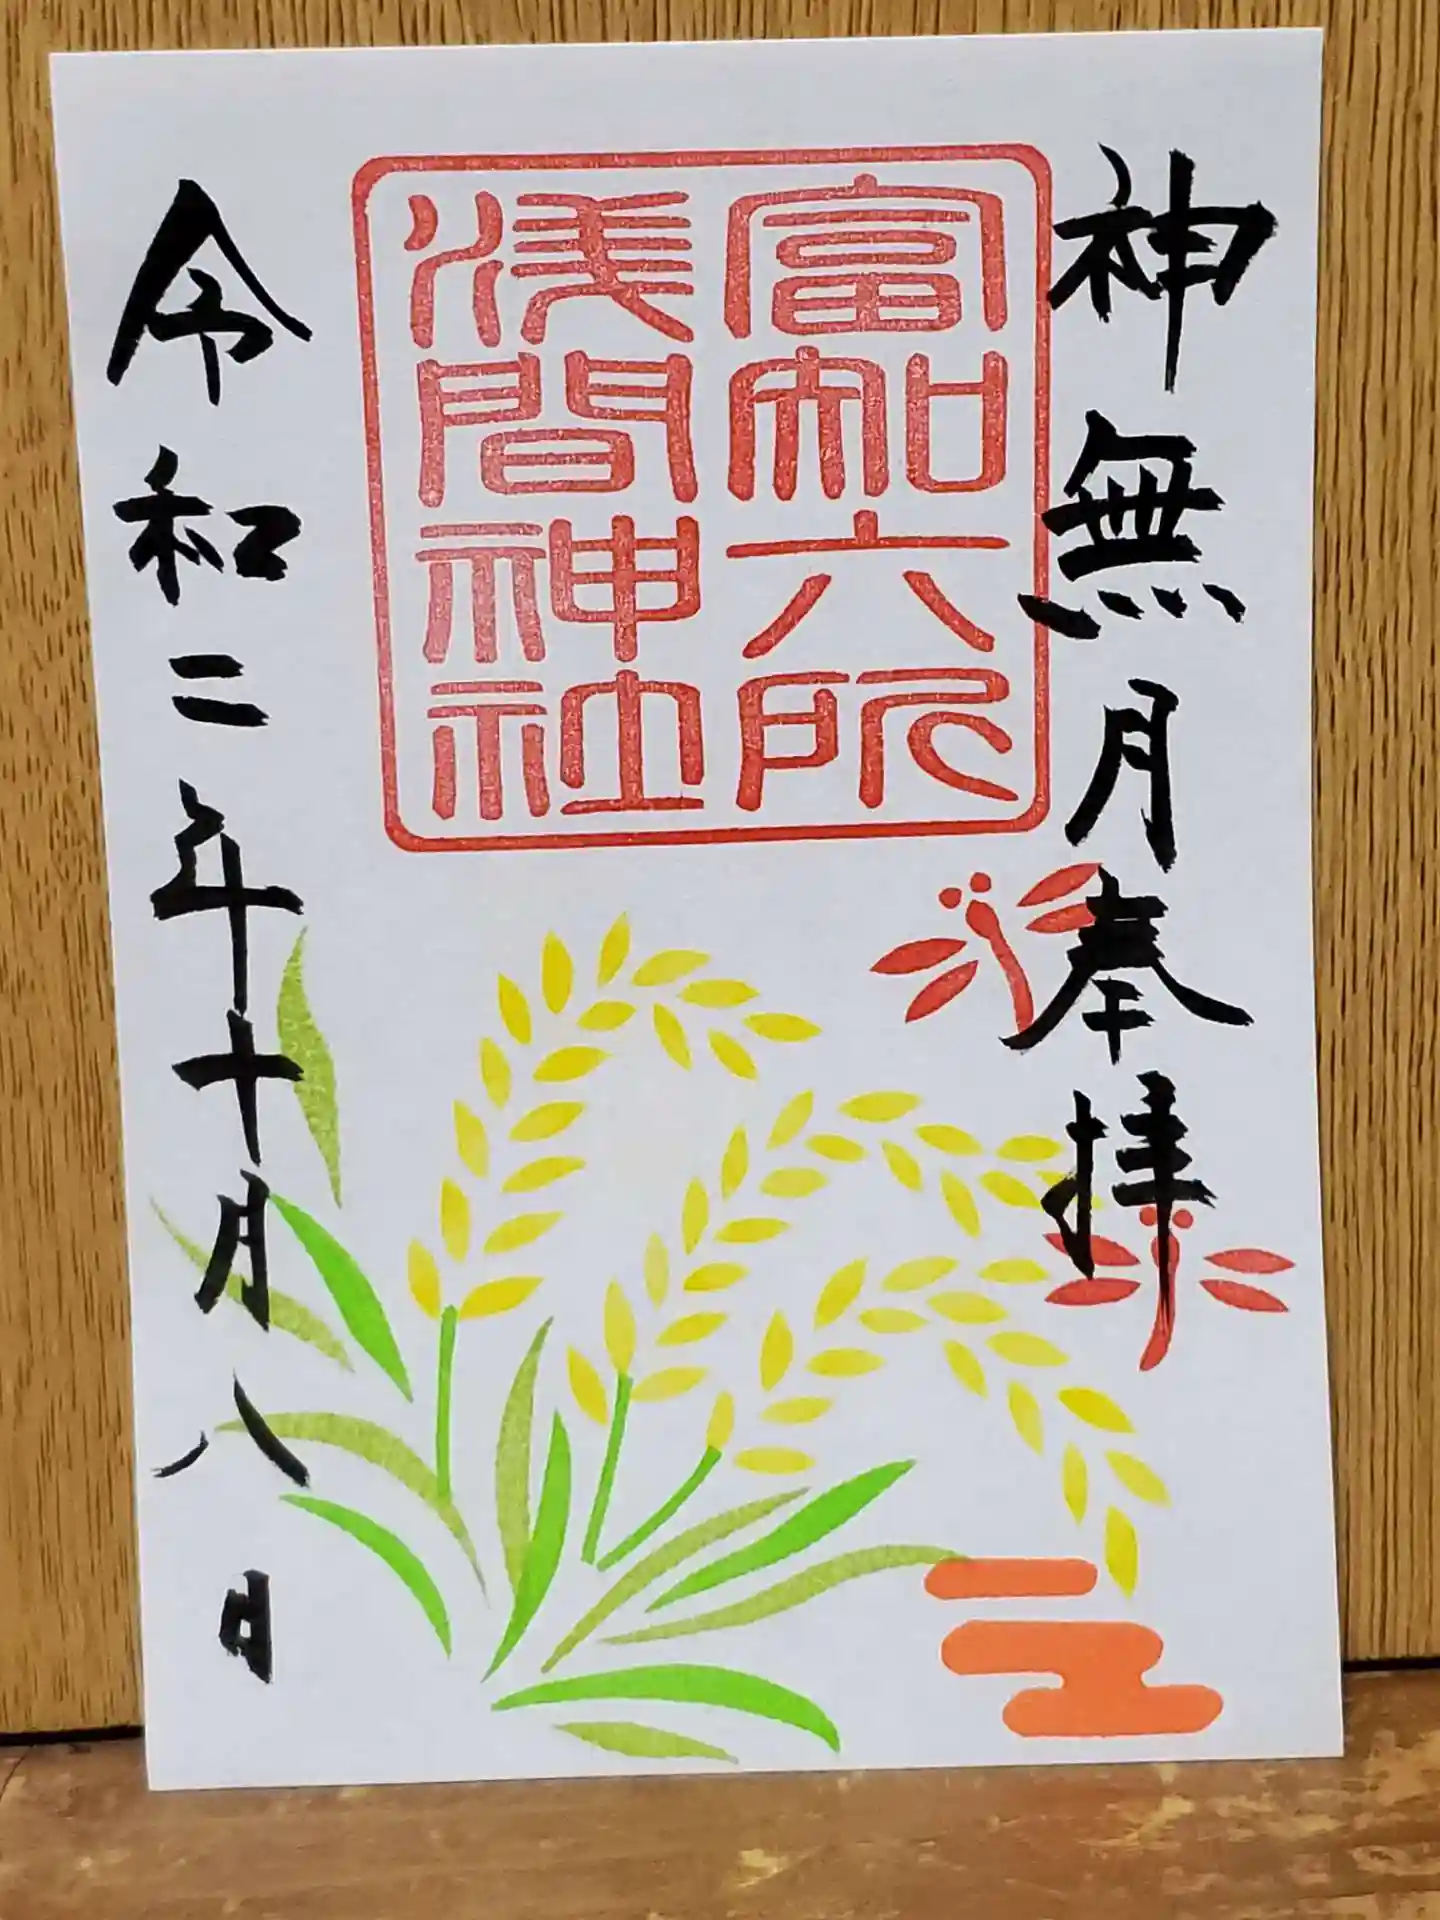 神無月奉拝
富知六所
浅間神社
令和二年十月八日